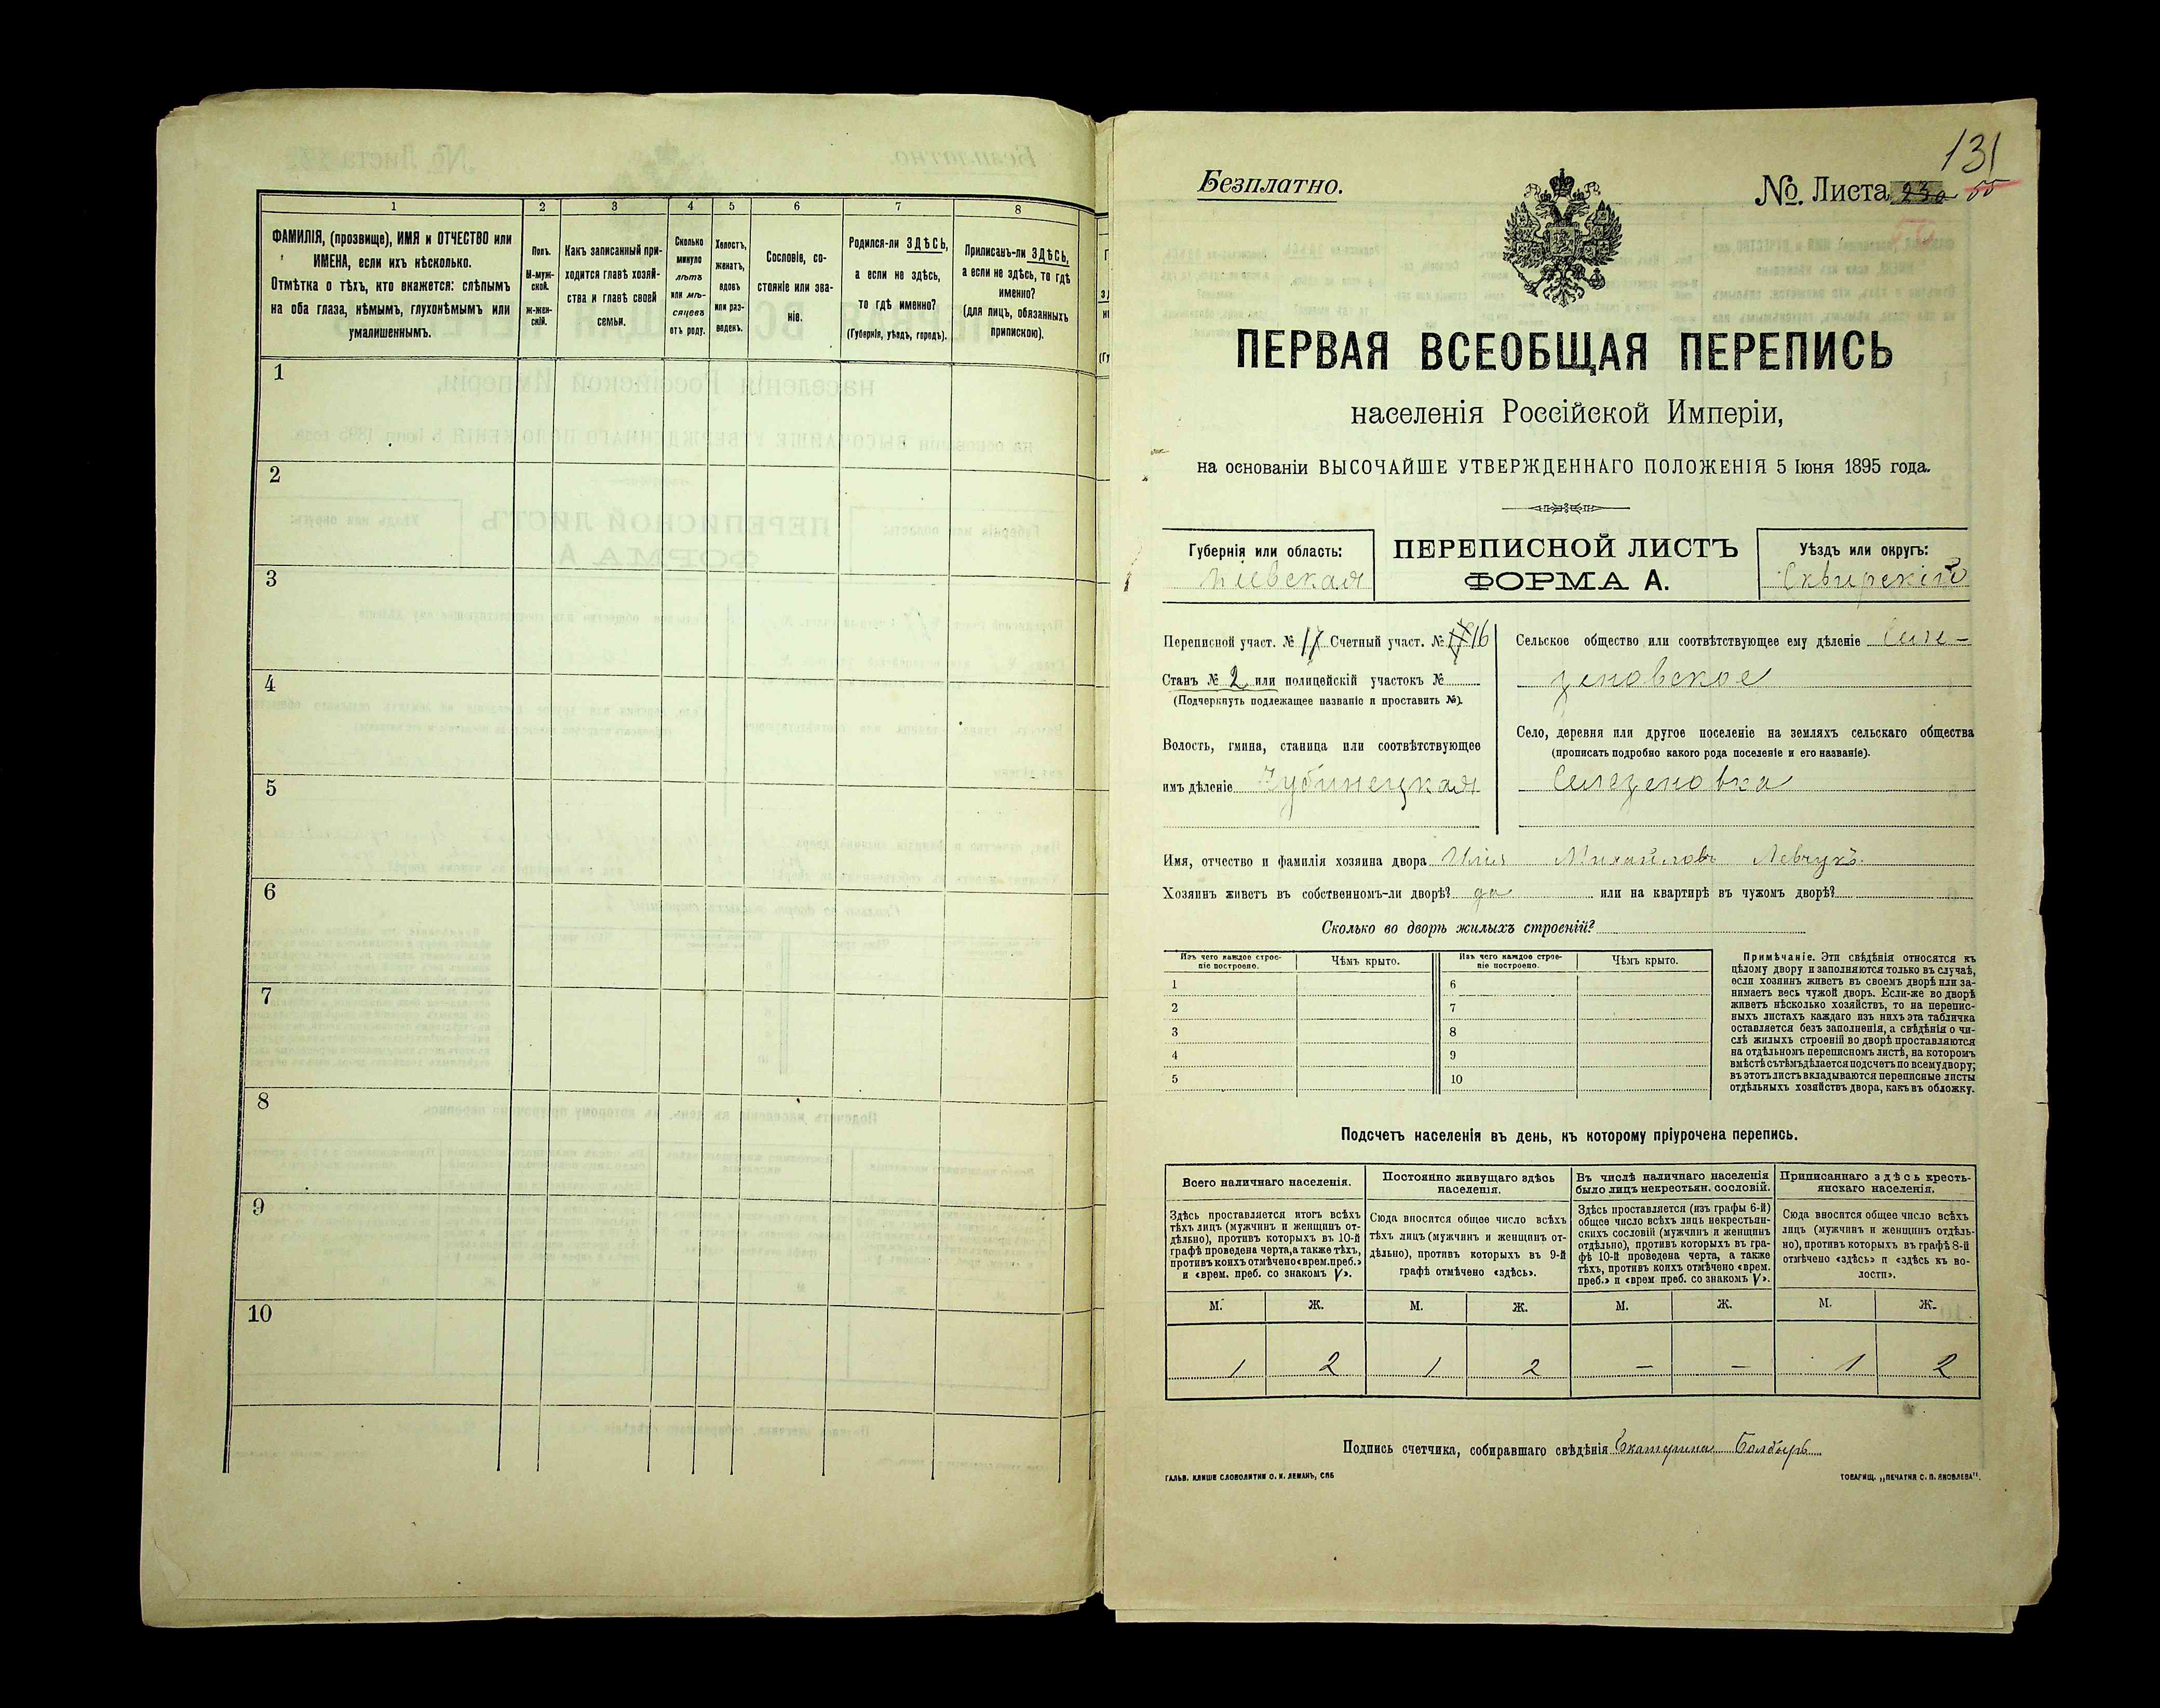 1 2 3 4 5 6 7 8
ФАМИЛІЯ, (прозвище), ИМЯ и ОТЧЕСТВО или
ИМЕНА, если ихъ нѣсколько.
Отмѣтка о тѣхъ, кто окажется: слѣпымъ
на оба глаза, нѣмымъ, глухонѣмымъ или
умалишеннымъ.
Полъ.
М-муж-
ской.
ж-жен-
скій.
Какъ записанный при-
ходится главѣ хозяй-
ства и главѣ своей
семьи.
Сколько
минуло
лѣтъ
или мѣ-
сяцевъ
отъ роду.
Холостъ,
женатъ,
вдовъ
или раз-
веденъ.
Сословіе, со-
стояніе или зва-
ніе.
Родился-ли ЗДѢСЬ,
а если не здѣсь,
то гдѣ именно?
(Губернія, уѣздъ, городъ).
Приписанъ-ли ЗДѢСЬ,
а если не здѣсь, то гдѣ
именно?
(для лицъ, обязанныхъ
припискою).
1
2
3
4
5
6
7
8
9
10
131
Безплатно.
№. Листа 23а 55
ПЕРВАЯ ВСЕОБЩАЯ ПЕРЕПИСЬ
населенія Россійской Имперіи,
на основаніи ВЫСОЧАЙШЕ УТВЕРЖДЕННАГО ПОЛОЖЕНІЯ 5 Іюня 1895 года.
Губернія или область:
Кіевская
ПЕРЕПИСНОЙ ЛИСТЪ
ФОРМА А.
Уѣздъ или округъ:
Сквирскій
Переписной участ. № 11 Счетный участ. № 16
Станъ № 2 или полицейскій участокъ №
(Подчеркнуть подлежащее названіе и проставить №).
Волость, гмина, станица или соотвѣтствующее
имъ дѣленіе Чубинецкая
Сельское общество или соотвѣтствующее ему дѣленіе Селе-
зеновское
Село, деревня или другое поселеніе на земляхъ сельскаго общества
(прописать подробно какого рода поселеніе и его названіе).
Селезеновка
Имя, отчество и фамилія хозяина двора Илія Михайловъ Левчукъ.
Хозяинъ живетъ въ собственномъ-ли дворѣ? да или на квартирѣ въ чужомъ дворѣ?
Сколько во дворѣ жилыхъ строеній?
Изъ чего каждое строе-
ніе построено.
Чѣмъ крыто.
Изъ чего каждое строе-
ніе построено.
Чѣмъ крыто.
1 6
2 7
3 8
4 9
5 10
Примѣчаніе. Эти свѣдѣнія относятся къ
цѣлому двору и заполняются только въ случаѣ,
если хозяинъ живетъ въ своемъ дворѣ или за-
нимаетъ весь чужой дворъ. Если-же во дворѣ
живетъ нѣсколько хозяйствъ, то на перепис-
ныхъ листахъ каждаго изъ нихъ эта табличка
оставляется безъ заполненія, а свѣдѣнія о чи-
слѣ жилыхъ строеній во дворѣ проставляются
на отдѣльномъ переписномъ листѣ, на которомъ
вмѣстѣ съ тѣмъ дѣлается подсчетъ по всему двору;
въ этотъ листъ вкладываются переписные листы
отдѣльныхъ хозяйствъ двора, какъ въ обложку.
Подсчетъ населенія въ день, къ которому пріурочена перепись.
Всего наличнаго населенія.
Здѣсь проставляется итогъ всѣхъ
тѣхъ лицъ (мужчинъ и женщинъ от-
дѣльно), противъ которыхъ въ 10-й
графѣ проведена черта, а также тѣхъ,
противъ коихъ отмѣчено «врем. преб.»
и «врем. преб. со знакомъ V».
Постоянно живущаго здѣсь
населенія.
Сюда вносится общее число всѣхъ
тѣхъ лицъ (мужчинъ и женщинъ от-
дѣльно), противъ которыхъ въ 9-й
графѣ отмѣчено «здѣсь».
Въ числѣ наличнаго населенія
было лицъ некрестьян. сословій.
Здѣсь проставляется (изъ графы 6-й)
общее число всѣхъ лицъ некрестьян-
скихъ сословій (мужчинъ и женщинъ
отдѣльно), противъ которыхъ въ гра-
фѣ 10-й проведена черта, а также
тѣхъ, противъ коихъ отмѣчено «врем.
преб.» и «врем преб. со знакомъ V».
Приписаннаго здѣсь кресть-
янскаго населенія.
Сюда вносится общее число всѣхъ
лицъ (мужчинъ и женщинъ отдѣль-
но), противъ которыхъ въ графѣ 8-й
отмѣчено «здѣсь» и «здѣсь къ во-
лости».
М. Ж. М. Ж. М. Ж. М. Ж.
1 2 1 2 — — 1 2
Подпись счетчика, собиравшаго свѣдѣнія Екатерина Болбыръ
ГАЛЬВ. КЛИШЕ СЛОВОЛИТНИ О. И. ЛЕМАНЪ, СПБ
ТОВАРИЩ. „ПЕЧАТНЯ С. П. ЯКОВЛЕВА".